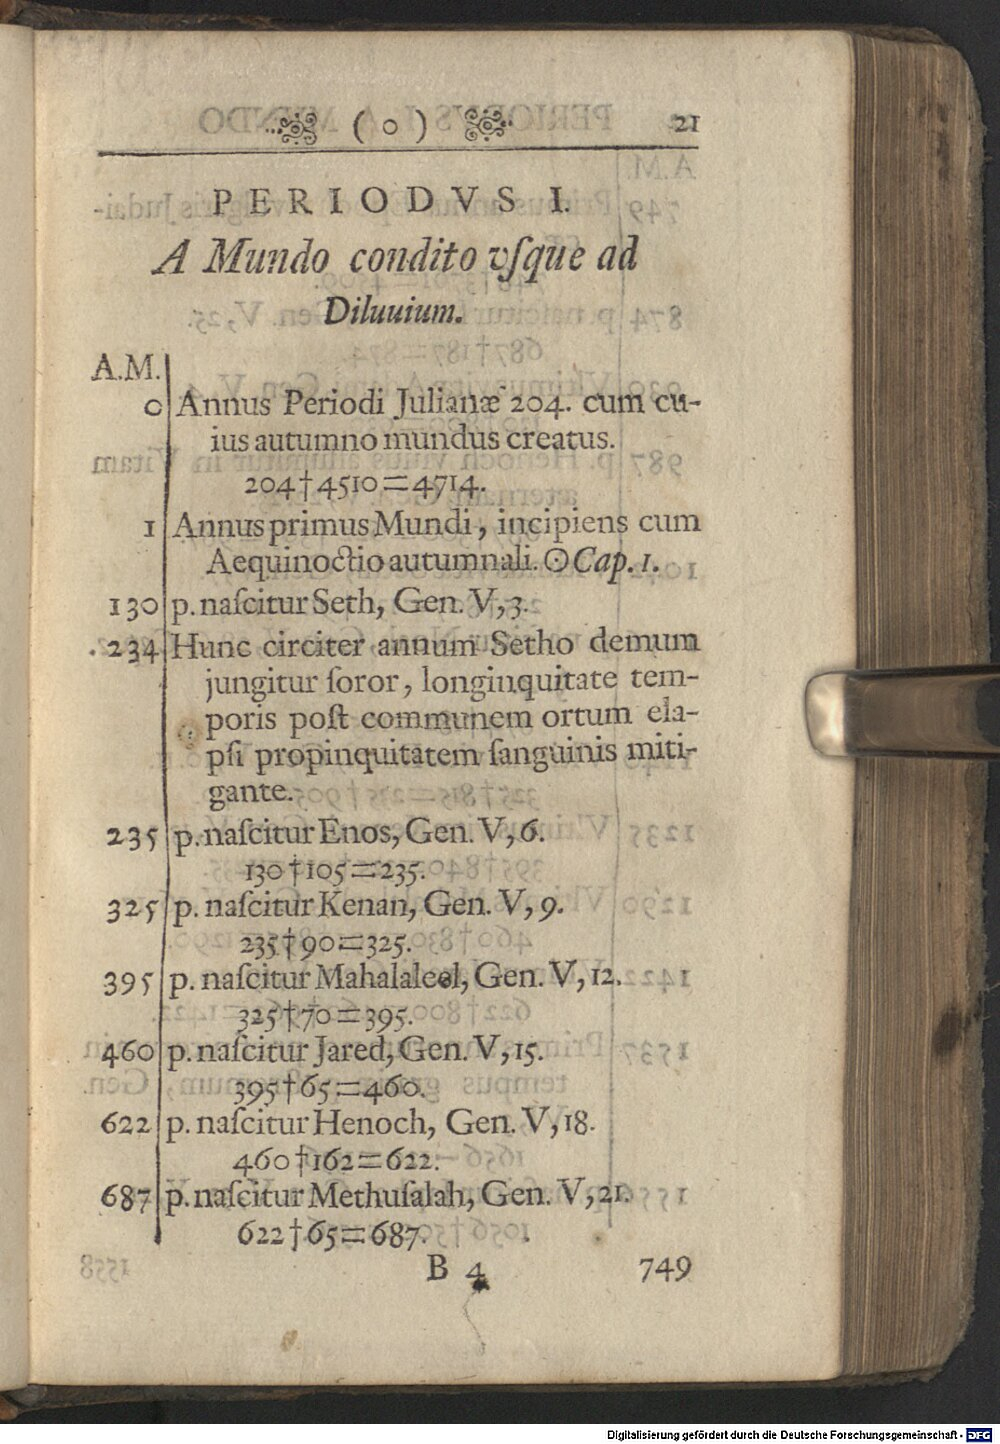 ( o ) 21
PERIODVS I.
A Mundo condito vſque ad
Diluuium.
A.M.
0 Annus Periodi Julianæ 204. cum cu-
ius autumno mundus creatus.
204†4510=4714.
1 Annus primus Mundi, incipiens cum
Aequinoctio autumnali. ☉ Cap. 1.
130 p. naſcitur Seth, Gen. V, 3.
234 Hunc circiter annum Setho demum
jungitur ſoror, longinquitate tem-
poris poſt communem ortum ela-
pſi propinquitatem ſanguinis miti-
gante.
235 p. naſcitur Enos, Gen. V, 6.
130†105=235.
325 p. naſcitur Kenan, Gen. V, 9.
235†90=325.
395 p. naſcitur Mahalaleel, Gen. V, 12.
325†70=395.
460 p. naſcitur Jared, Gen. V, 15.
395†65=460.
622 p. naſcitur Henoch, Gen. V, 18.
460†162=622.
687 p. naſcitur Methuſalah, Gen. V, 21.
622†65=687.
B 4 749
Digitalisierung gefördert durch die Deutsche Forschungsgemeinschaft - DFG